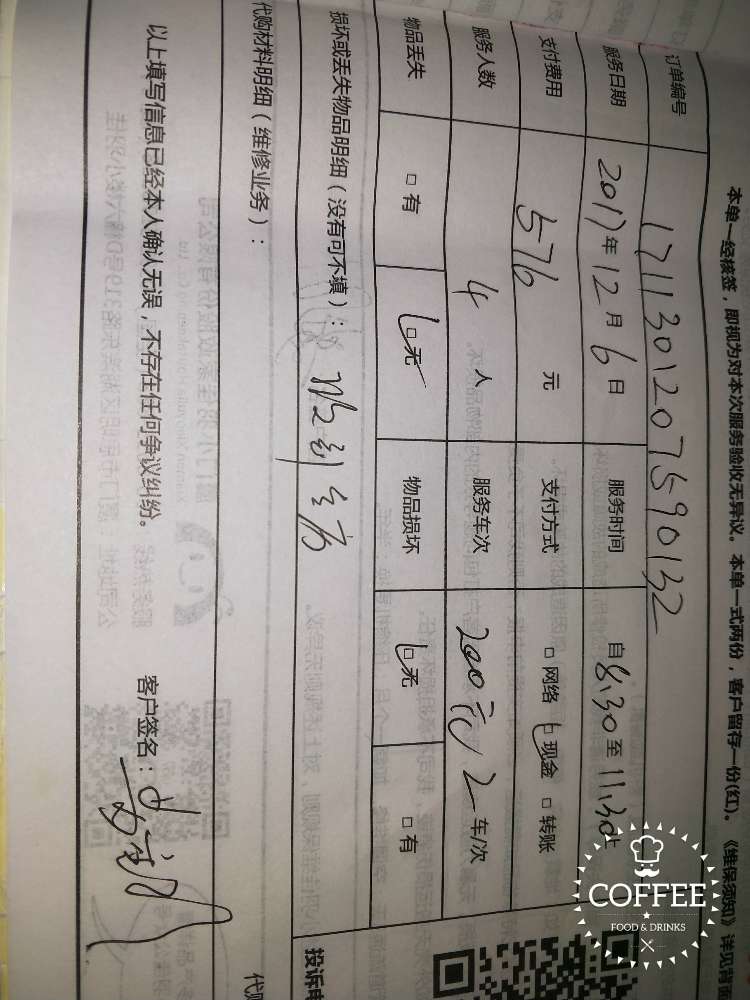 本单一经核签，即视为对本次服务验收无异议。本单一式两份，客户留存一份(红)。《维保须知》详见背面
订单编号 1711301207590132
服务日期 2017年12月6日 服务时间 自8:30至11:30
支付费用 576 元 支付方式 □网络 □现金 □转账
服务人数 4 人 服务车次 200元/2车/次
物品丢失 □有 □无 物品损坏 □无 □有
损坏或丢失物品明细（没有可不填）：
代购材料明细（维修业务）：
以上填写信息已经本人确认无误，不存在任何争议纠纷。 客户签名：
投诉电
代购
COFFEE
FOOD & DRINKS